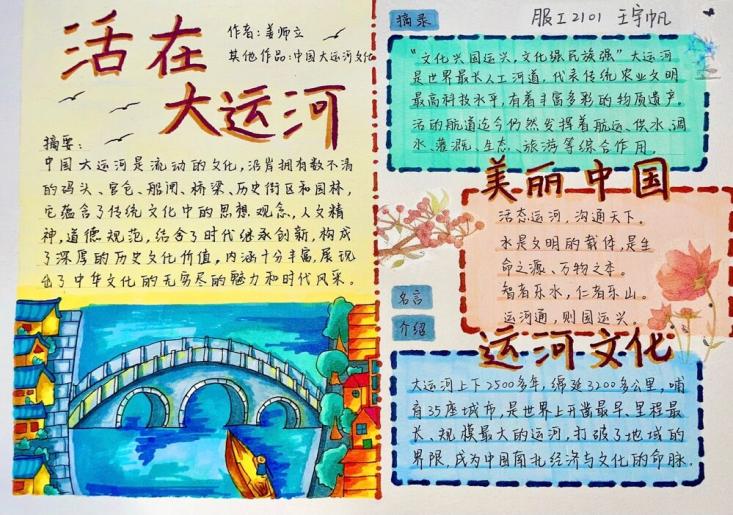 活在
大运河
作者：姜师立
其他作品：中国大运河文化
摘要：
中国大运河是流动的文化，沿岸拥有数不清
的码头、官仓、船闸、桥梁、历史街区和园林，
它蕴含了传统文化中的思想观念、人文精
神，道德规范，结合了时代继承创新，构成
了深厚的历史文化价值，内涵十分丰富，展现
出了中华文化的无穷尽的魅力和时代风采。
摘录
服工2101 王宇帆
“文化兴国运兴，文化强民族强”大运河
是世界最长人工河道，代表传统农业文明
最高科技水平，有着丰富多彩的物质遗产。
活的航道迄今仍然发挥着航运、供水、调
水、灌溉、生态、旅游等综合作用。
美丽中国
活态运河，沟通天下。
水是文明的载体，是生
命之源、万物之本。
智者乐水，仁者乐山。
运河通，则国运兴。
名言
介绍
运河文化
大运河上下2500多年，绵延3200多公里，哺
育35座城市，是世界上开凿最早、里程最
长、规模最大的运河，打破了地域的
界限，成为中国南北经济与文化的命脉。